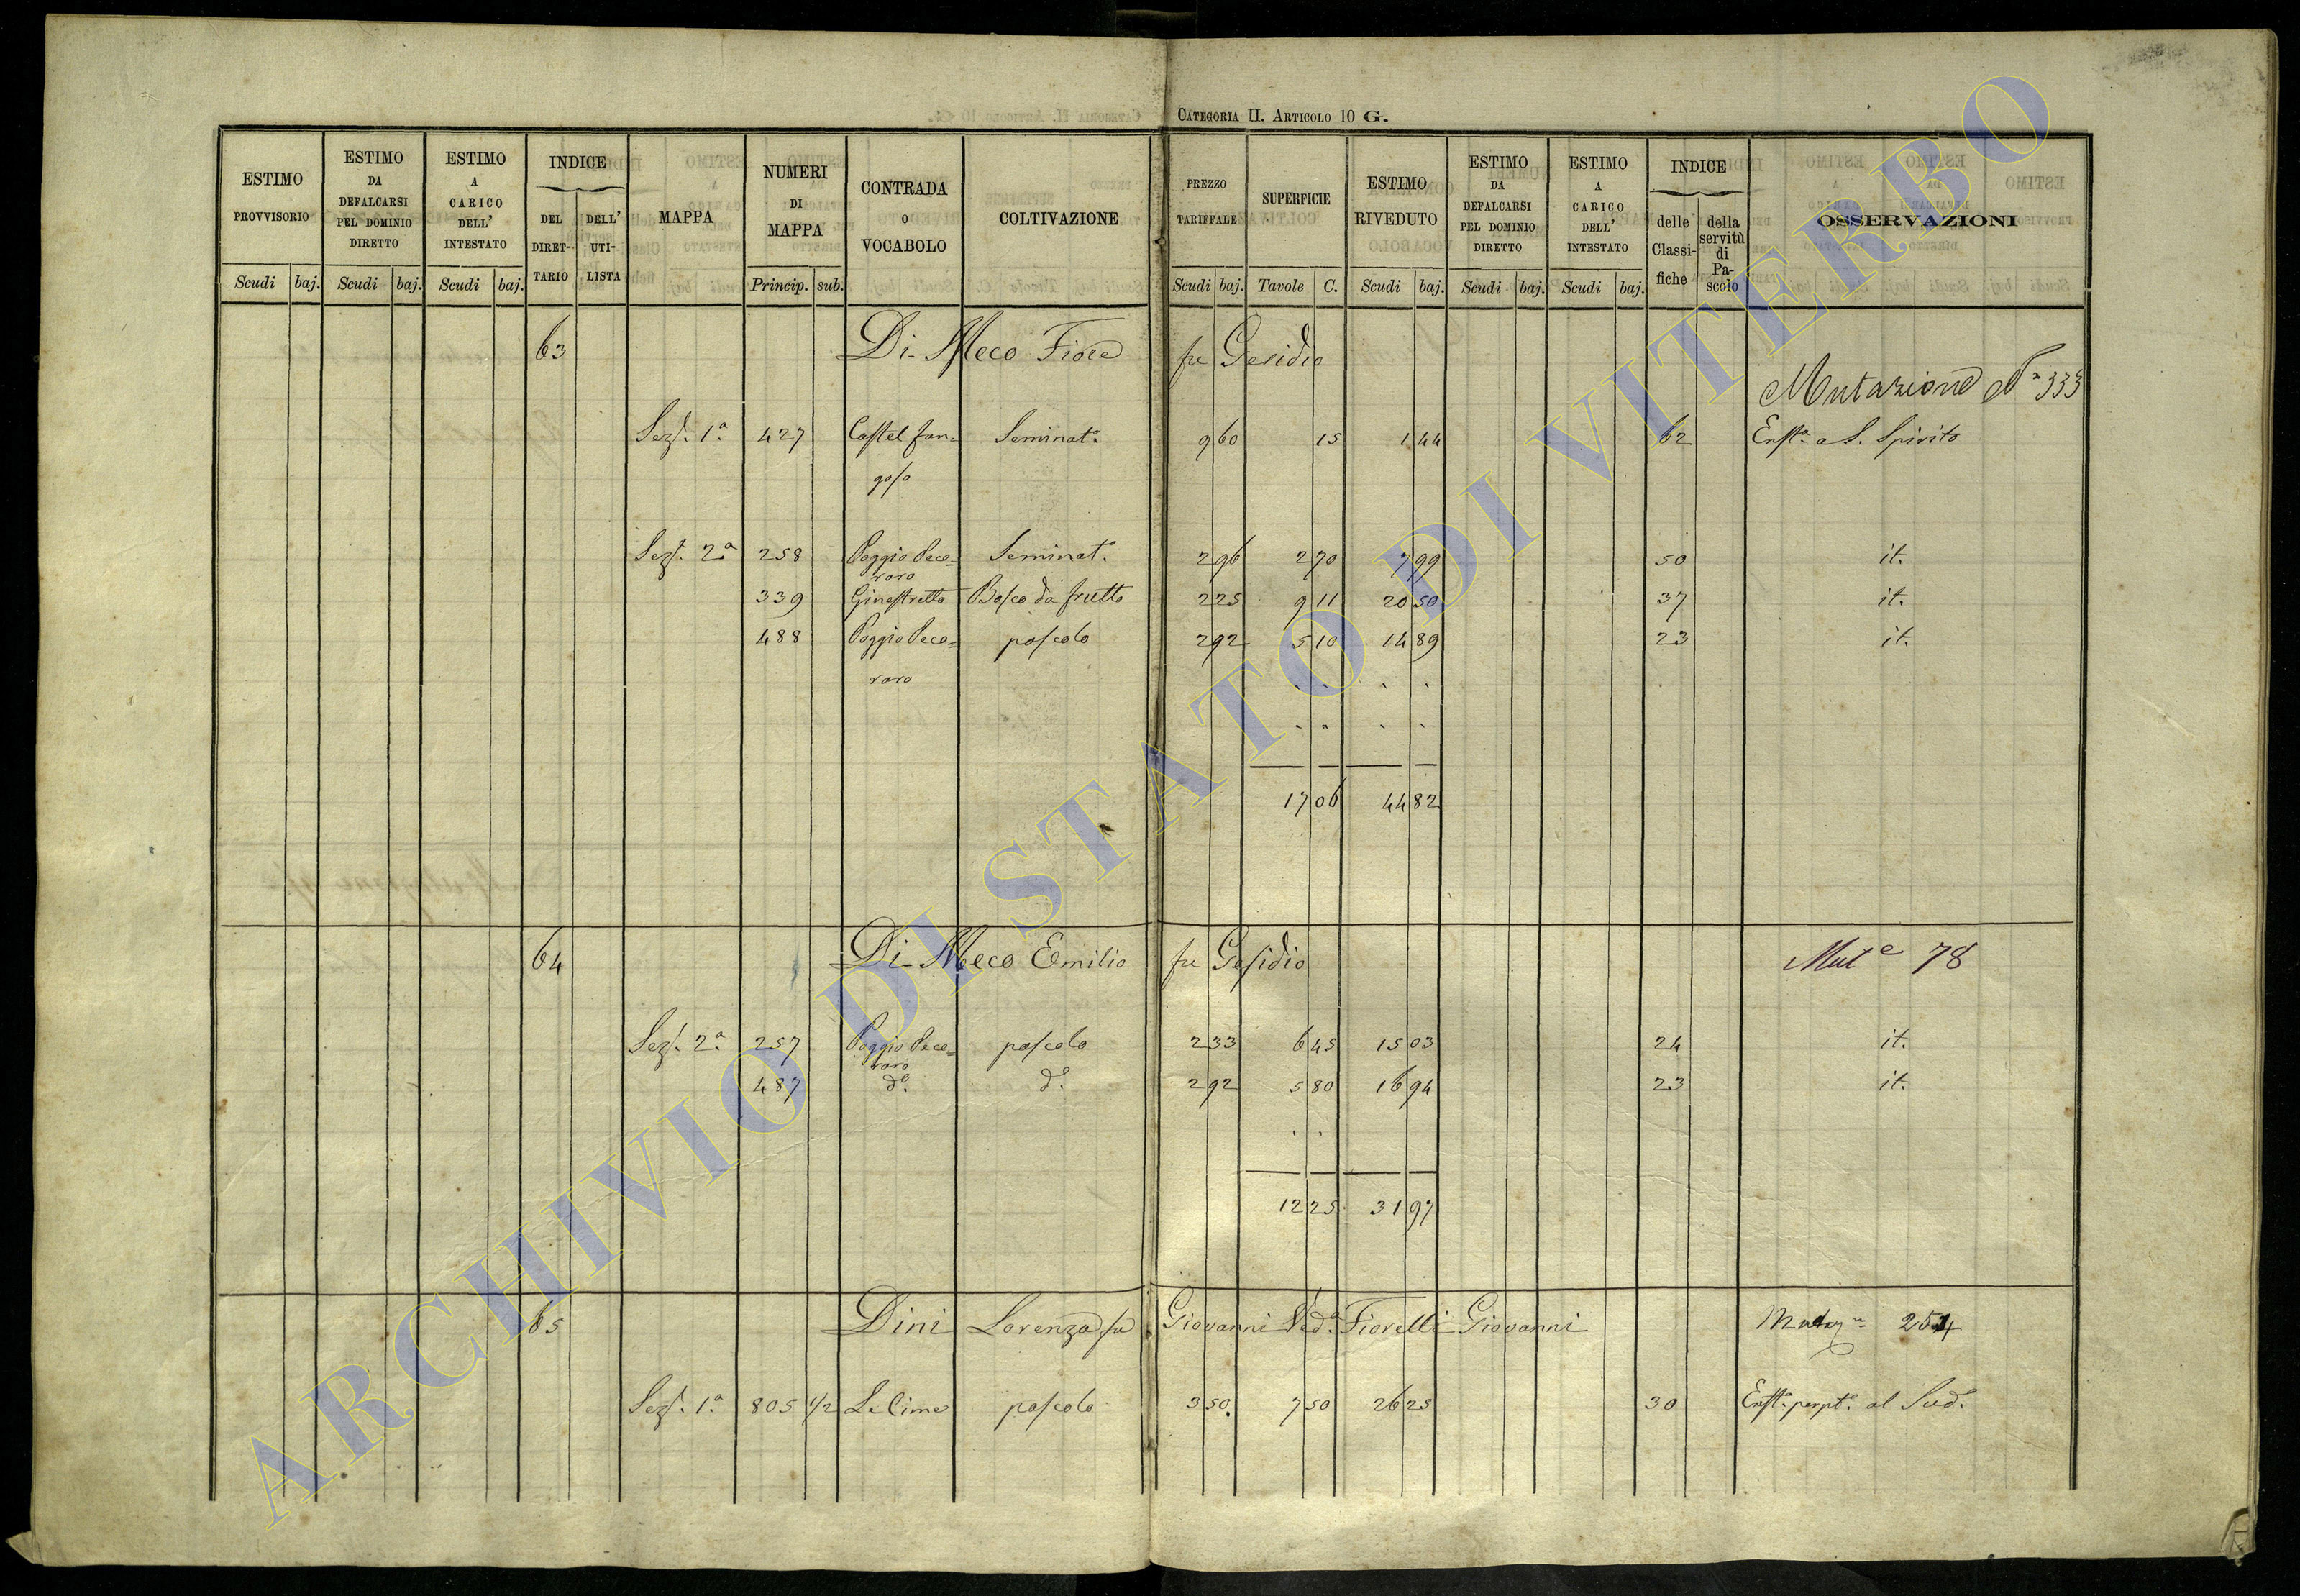 CATEGORIA II. ARTICOLO 10 G.
ESTIMO PROVVISORIO
Scudi baj.
ESTIMO DA DEFALCARSI PEL DOMINIO DIRETTO
Scudi baj.
ESTIMO A CARICO DELL' INTESTATO
Scudi baj.
INDICE
DEL DIRET-TARIO
DELL' UTI-LISTA
MAPPA
NUMERI DI MAPPA
Princip. sub.
CONTRADA O VOCABOLO
COLTIVAZIONE
PREZZO TARIFFALE
Scudi baj.
SUPERFICIE
Tavole C.
ESTIMO RIVEDUTO
Scudi baj.
ESTIMO DA DEFALCARSI PEL DOMINIO DIRETTO
Scudi baj.
ESTIMO A CARICO DELL' INTESTATO
Scudi baj.
INDICE
delle Classi-fiche
della servitù di Pa-scolo
OSSERVAZIONI
63 Di-Meco Fiore fu Gesidio
Mutazione N° 333
Sezⁿ. 1ª 427 Castel fan= Seminatº. 9 60 15 1 44 62 Enftª. a S. Spirito
goso
Sezⁿ. 2ª 258 Poggio Peco= Seminatº. 2 96 2 70 7 99 50 it.
raro
339 Ginestretto Bosco da frutto 2 25 9 11 20 50 37 it.
488 Poggio Peco= pascolo 2 92 5 10 14 89 23 it.
raro
17 06 44 82
64 Di-Meco Emilio fu Gesidio Mutᵉ 78
Sezⁿ. 2ª 257 Poggio Peco= pascolo 2 33 6 45 15 03 24 it.
raro
487 dº. dº. 2 92 5 80 16 94 23 it.
12 25 31 97
65 Dini Lorenza fu Giovanni Vedª. Fiorelli Giovanni Mutazⁿᵉ 254
Sezⁿ. 1ª 805 1/2 Le Cime pascolo 3 50 7 50 26 25 30 Enftª. perptª. al Sudº.
ARCHIVIO DI STATO DI VITERBO